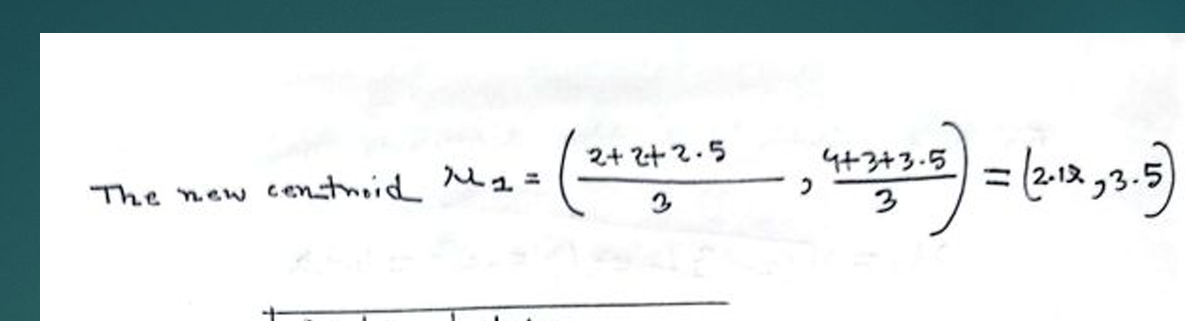 The new centroid μ1 = ( (2+2+2.5)/3 , (4+3+3.5)/3 ) = (2.12, 3.5)